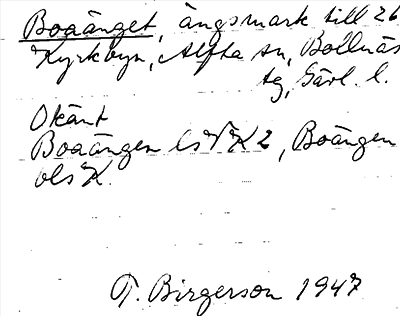 Boaänget, ängsmark till 26
Kyrkbyn, Alfta sn, Bollnäs
tg, Gävl. l.
Okänt
Boaängen ls N K 2, Boängen
ols K.
T. Birgerson 1947